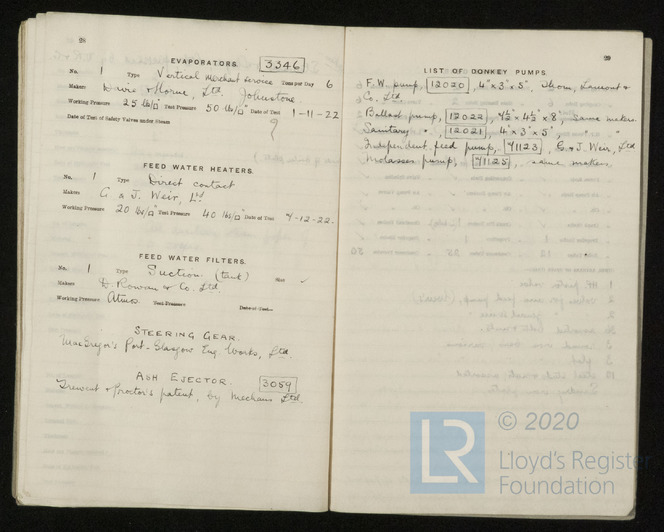 28
EVAPORATORS. 3346
No. 1 Type Vertical merchant service Tons per Day 6
Makers Davie & Horne, Ltd. Johnstone.
Working Pressure 25 lbs/□" Test Pressure 50 lbs/□" Date of Test 1-11-22
Date of Test of Safety Valves under Steam
FEED WATER HEATERS.
No. 1 Type Direct contact
Makers G & J. Weir, Ltd
Working Pressure 20 lbs/□" Test Pressure 40 lbs/□" Date of Test 7-12-22.
FEED WATER FILTERS.
No. 1 Type Suction. (tank) Size ✓
Makers D. Rowan & Co. Ltd.
Working Pressure Atmos. Test Pressure Date of Test
STEERING GEAR.
MacGregor's Port-Glasgow Eng. Works, Ltd.
ASH EJECTOR. 3059
Trewent & Proctor's patent, by Mechans Ltd.
29
LIST OF DONKEY PUMPS.
F.W. pump, 12020, 4" x 3" x 5", Thom, Lamont &
Co. Ltd
Ballast pump, 12022, 7½ x 4½ x 8", same makers.
Sanitary ", 12021, 4" x 3" x 5", " "
Independent feed pump, 71123, G. & J. Weir, Ltd
Molasses pump, 71125, same makers.
© 2020
LR Lloyd's Register
Foundation